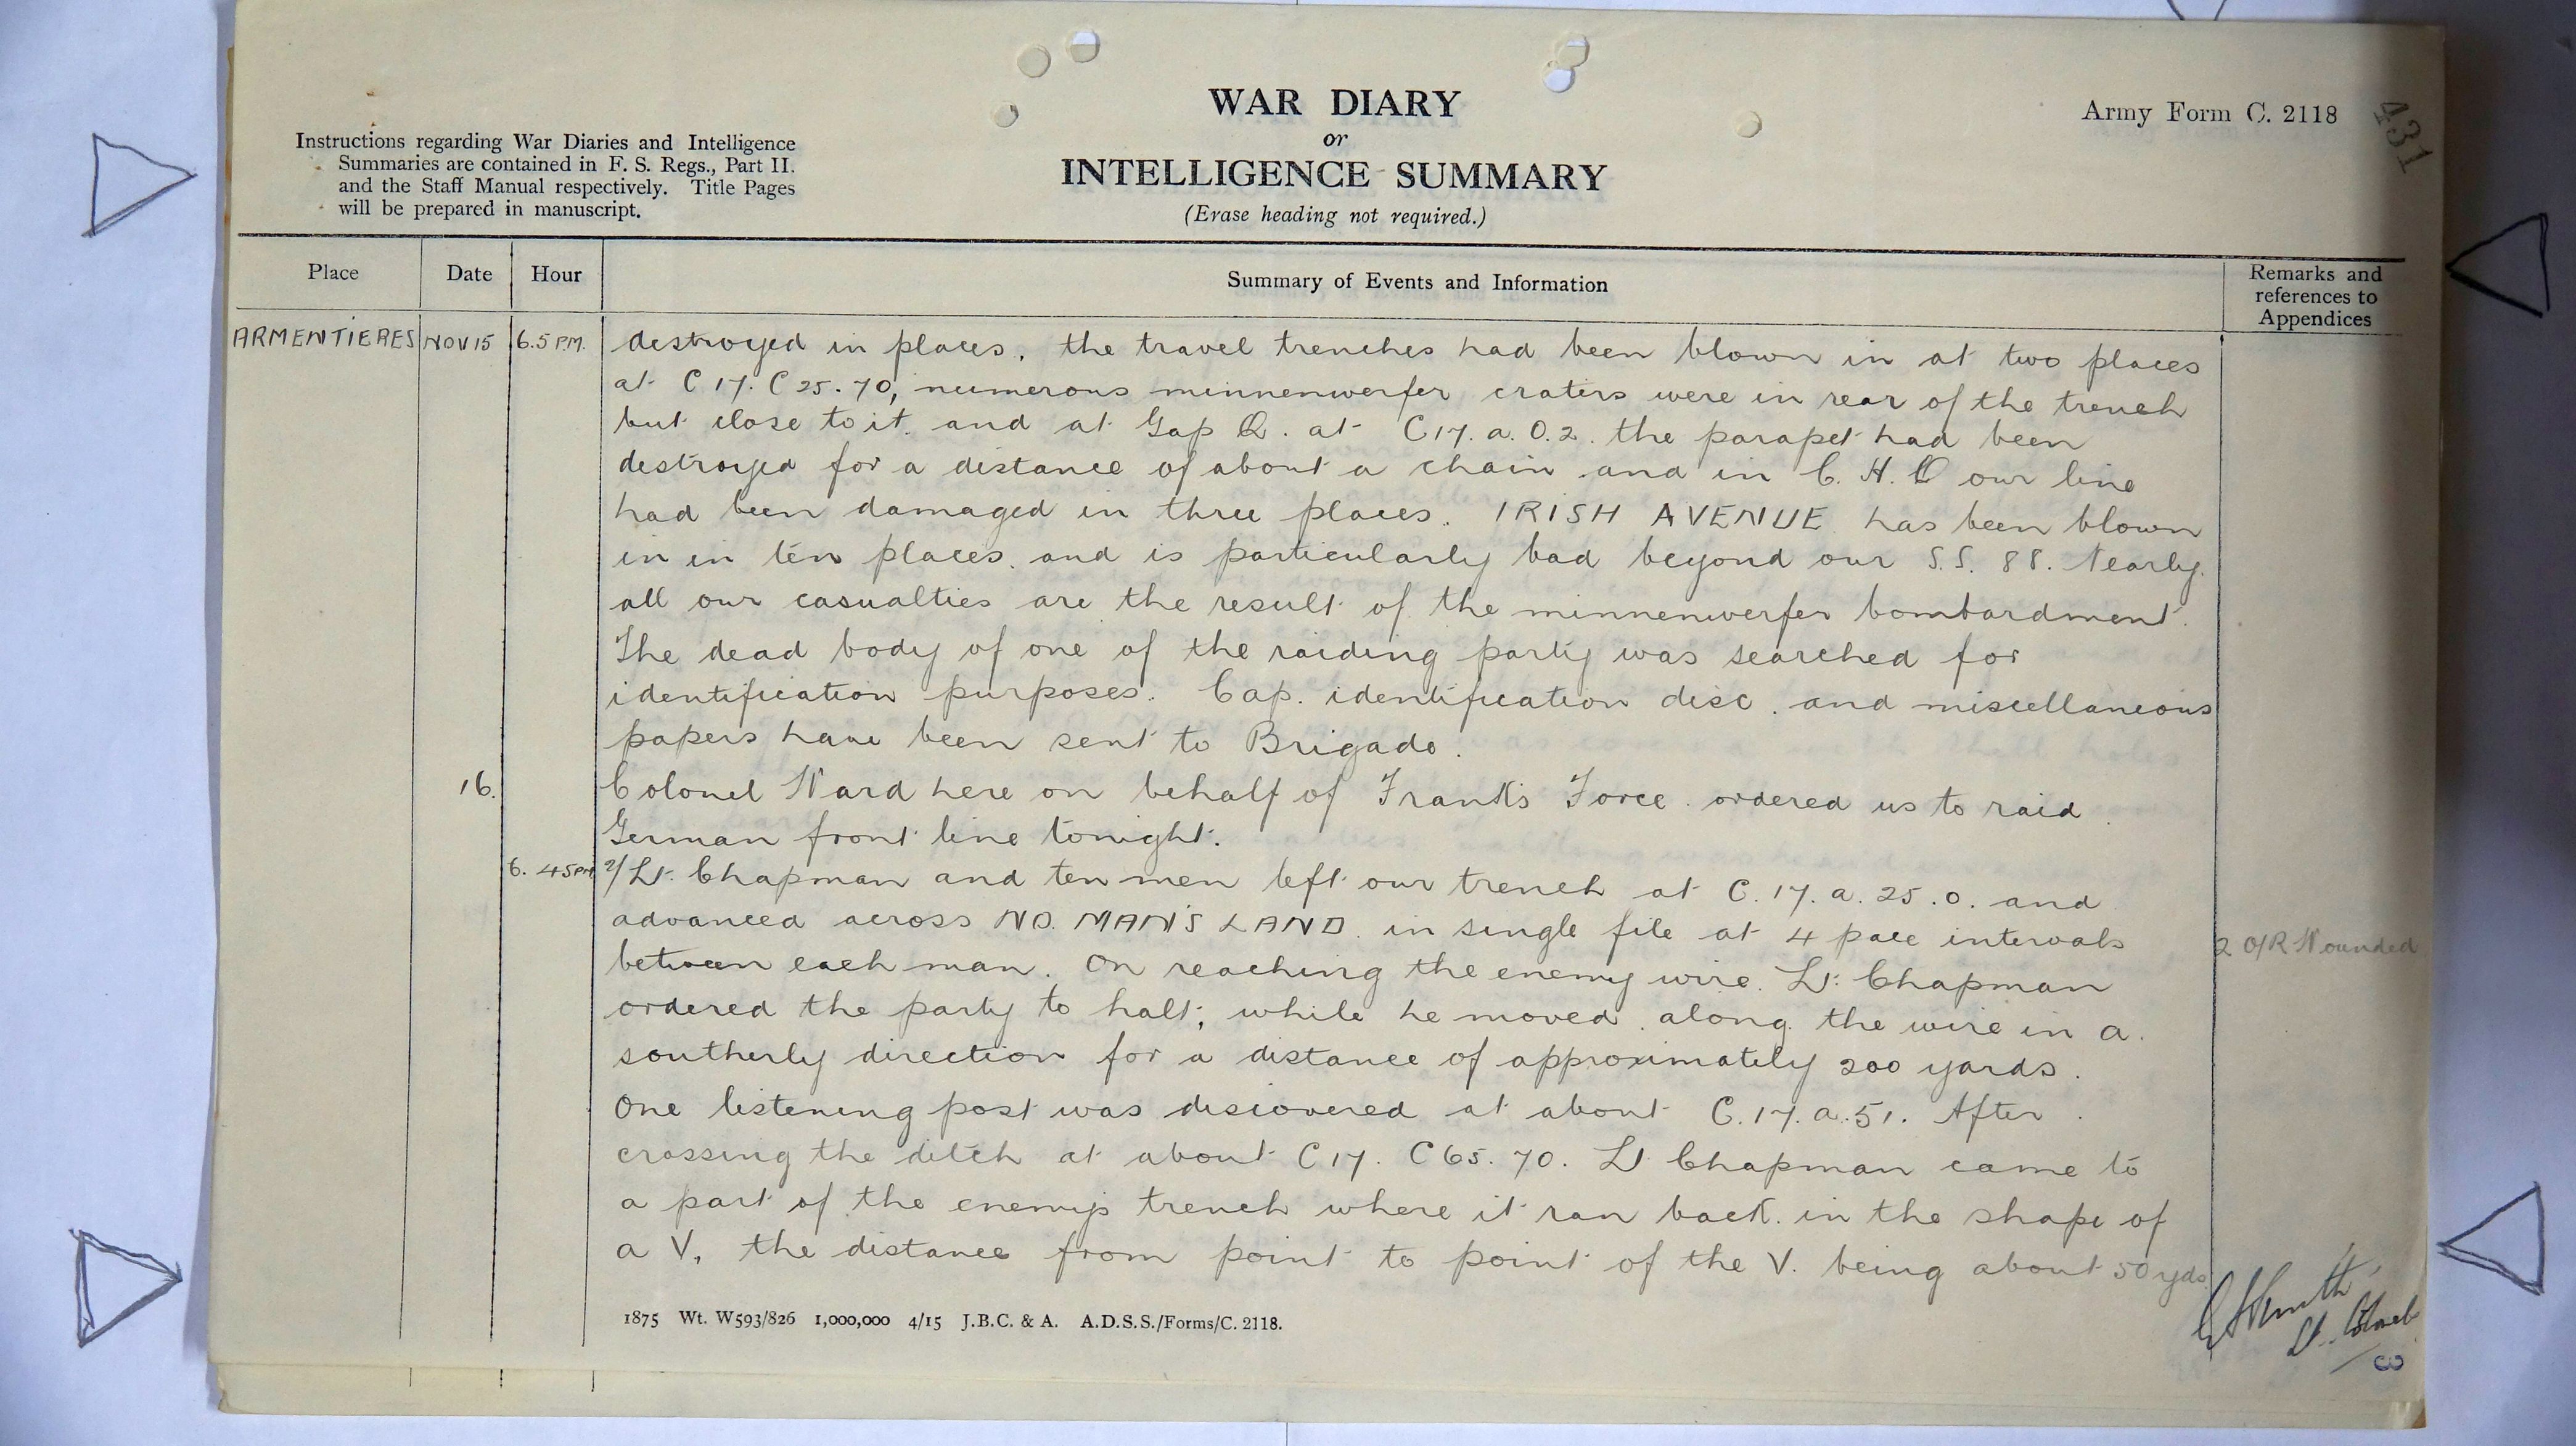 WAR DIARY
or
INTELLIGENCE SUMMARY
(Erase heading not required.)
Army Form C. 2118
431
Instructions regarding War Diaries and Intelligence
Summaries are contained in F. S. Regs., Part II.
and the Staff Manual respectively. Title Pages
will be prepared in manuscript.
Place
Date
Hour
Summary of Events and Information
Remarks and
references to
Appendices
ARMENTIERES NOV 15 6.5 P.M. destroyed in places, the travel trenches had been blown in at two places
at C 17. C 25. 70, numerous minnenwerfer craters were in rear of the trench
but close to it. and at Gap Q. at C 17. a. 0. 2. the parapet had been
destroyed for a distance of about a chain and in C. H. our line
had been damaged in three places. IRISH AVENUE has been blown
in in ten places. and is particularly bad beyond our S.S. 88. Nearly
all our casualties are the result of the minnenwerfer bombardment.
The dead body of one of the raiding party was searched for
identification purposes. Cap. identification disc. and miscellaneous
papers have been sent to Brigade.
16. Colonel Ward here on behalf of Frank's Force. ordered us to raid
German front line tonight.
6. 45 PM 2/Lt. Chapman and ten men left our trench at C. 17. a. 25. 0. and
advanced across NO. MAN'S LAND. in single file at 4 pace intervals
between each man. On reaching the enemy wire. Lt. Chapman
2 O/R Wounded
ordered the party to halt, while he moved along the wire in a
southerly direction for a distance of approximately 200 yards.
One listening post was discovered at about C. 17. a. 51. After
crossing the ditch at about C 17. C 65. 70. Lt Chapman came to
a part of the enemy's trench where it ran back in the shape of
a V, the distance from point to point of the V. being about 50 yds
Lt. Colonel
3
1875 Wt. W593/826 1,000,000 4/15 J.B.C. & A. A.D.S.S./Forms/C. 2118.